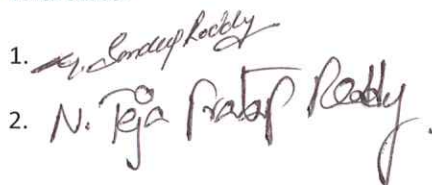 1. Sandeep Reddy
2. N. Teja Pratap Reddy.